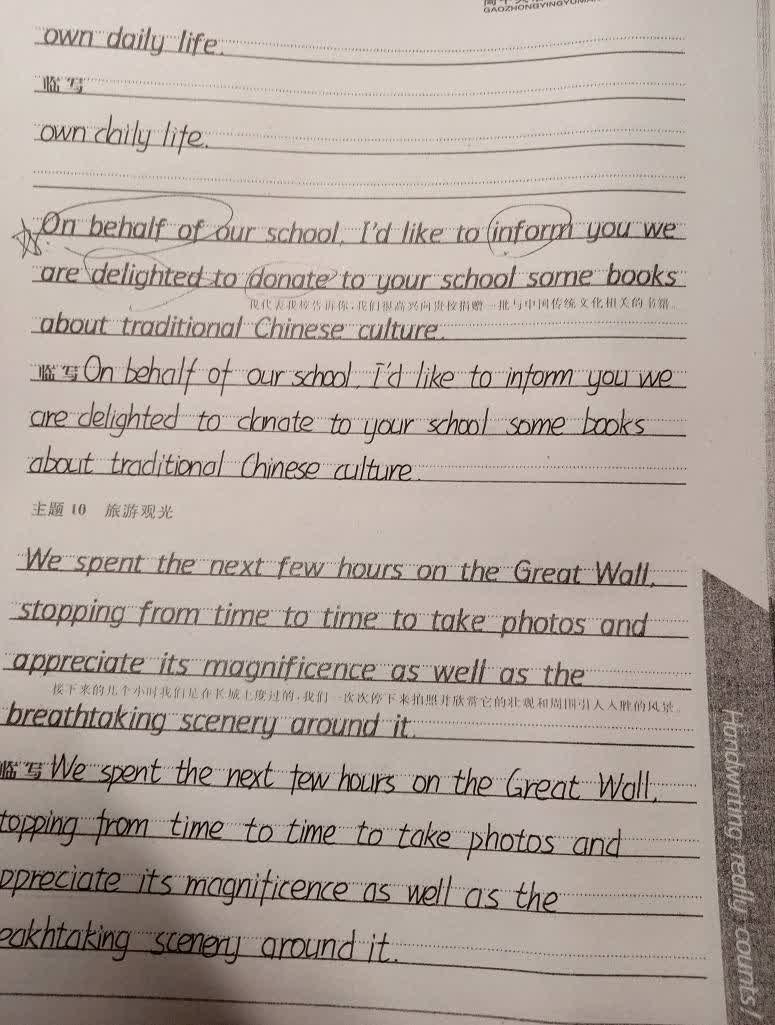 GAOZHONGYINGYU
own daily life.
临写
own daily life.
On behalf of our school, I'd like to inform you we
are delighted to donate to your school some books
我代表我校告诉你,我们很高兴向贵校捐赠一批与中国传统文化相关的书籍。
about traditional Chinese culture.
临写 On behalf of our school, I'd like to inform you we
are delighted to donate to your school some books
about traditional Chinese culture.
主题 10 旅游观光
We spent the next few hours on the Great Wall,
stopping from time to time to take photos and
appreciate its magnificence as well as the
接下来的几个小时我们是在长城上度过的,我们一次次停下来拍照并欣赏它的壮观和周围引人入胜的风景。
breathtaking scenery around it.
临写 We spent the next few hours on the Great Wall,
topping from time to time to take photos and
ppreciate its magnificence as well as the
eakhtaking scenery around it.
Handwriting really counts!